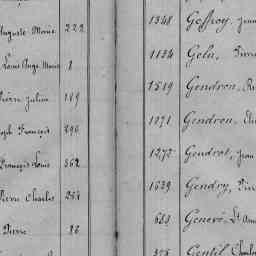 Auguste Marie 222
Louis Ange Marie 8
Pierre Julien 189
Joseph François 296
François Louis 362
Pierre Charles 254
Pierre 86
1348 Geffroy, Jean
1134 Gelu, Pierre
1519 Gendron,
1271 Gendron,
1272 Gendrot, Jean
1639 Gendry, Pier
Genevé, St
Gentil Charles